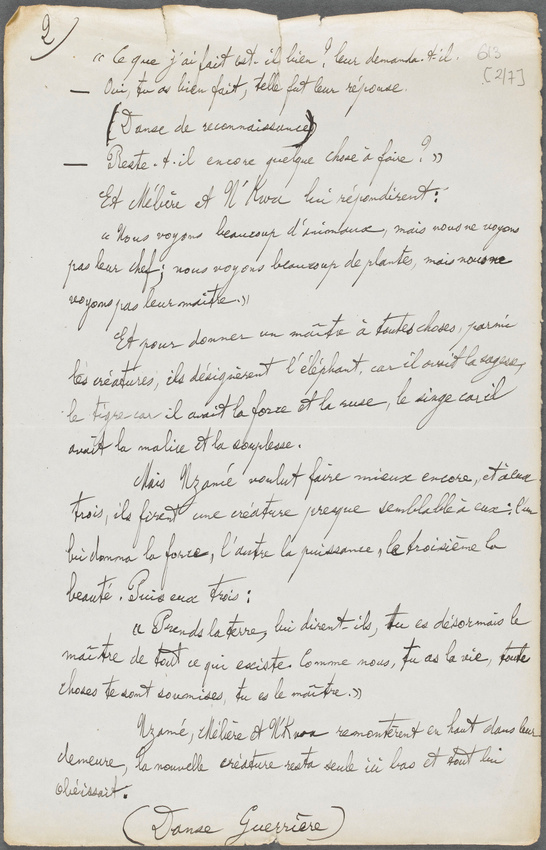 2
613
[2/7]
« Ce que j'ai fait est-il bien ? leur demanda-t-il.
— Oui, tu as bien fait, telle fut leur réponse.
(Danse de reconnaissance)
— Reste-t-il encore quelque chose à faire ? »
Et Mébère et N'Kwa lui répondirent :
« Nous voyons beaucoup d'animaux, mais nous ne voyons
pas leur chef ; nous voyons beaucoup de plantes, mais nous ne
voyons pas leur maître. »
Et pour donner un maître à toutes choses, parmi
les créatures, ils désignèrent l'éléphant, car il avait la sagesse,
le tigre car il avait la force et la ruse, le singe car il
avait la malice et la souplesse.
Mais Nzamé voulut faire mieux encore, et à eux
trois, ils firent une créature presque semblable à eux : l'un
lui donna la force, l'autre la puissance, le troisième la
beauté. Puis eux trois :
« Prends la terre, lui dirent-ils, tu es désormais le
maître de tout ce qui existe. Comme nous, tu as la vie, toute
choses te sont soumises, tu es le maître. »
Nzamé, Mébère et N'Kwa remontèrent en haut dans leur
demeure, la nouvelle créature resta seule ici bas et tout lui
obéissait.
(Danse Guerrière)